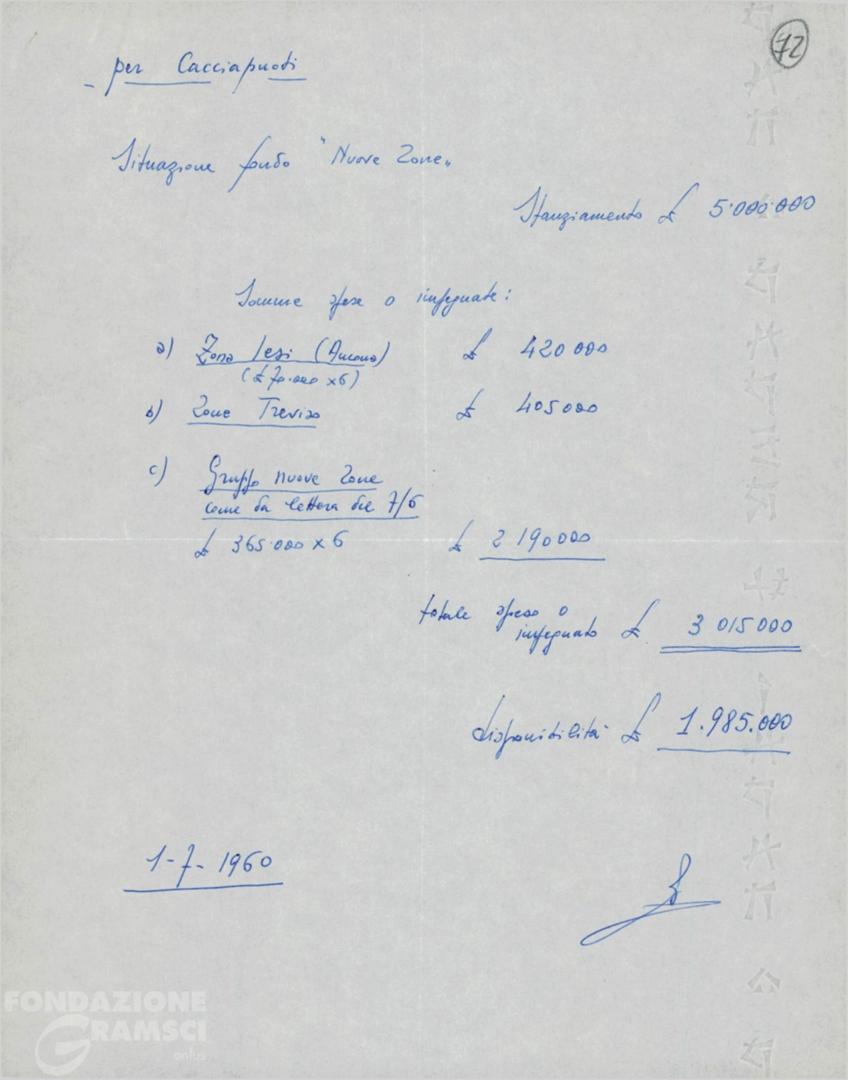 72
- per Cacciapuoti
Situazione fondo "Nuove Zone"
Stanziamento £ 5.000.000
Somme spese o impegnate:
a) Zona Iesi (Ancona) £ 420 000
(£ 70.000 x 6)
b) Zone Treviso £ 405 000
c) Gruppo nuove zone
come da lettera del 7/6
£ 365.000 x 6 £ 2 190 000
totale speso o
impegnato £ 3 015 000
disponibilità £ 1.985.000
1-7-1960
FONDAZIONE
GRAMSCI
onlus